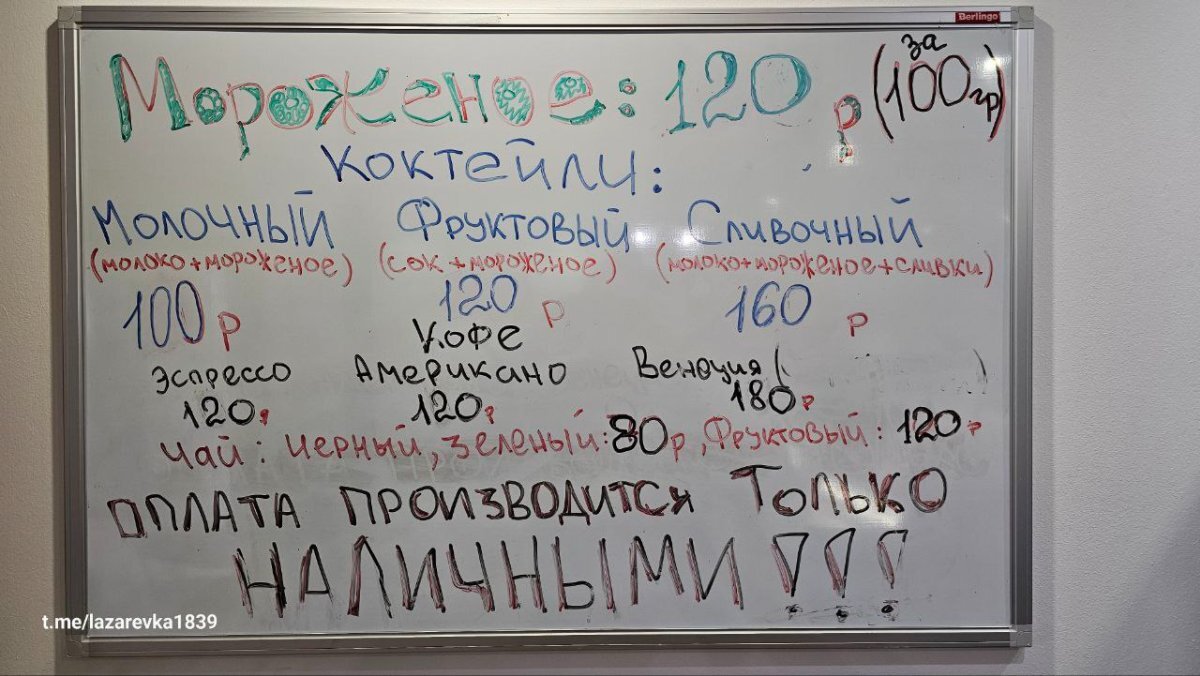 Berlingo
Мороженое: 120 р (за 100 гр)
Коктейли:
Молочный Фруктовый Сливочный
(молоко+мороженое) (сок+мороженое) (молоко+мороженое+сливки)
100 р 120 р 160 р
Кофе
Эспрессо Американо Венеция ( )
120 р 120 р 180 р
Чай: черный, зеленый: 80 р, Фруктовый: 120 р
ОПЛАТА ПРОИЗВОДИТСЯ ТОЛЬКО
НАЛИЧНЫМИ !!!
t.me/lazarevka1839